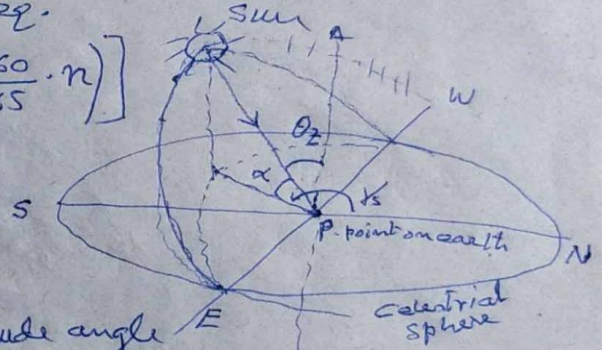 eq.
Sun
60
65 · n)]
A
W
θz
α
γs
S
P. point on earth
N
Celestrial
Sphere
E
ude angle